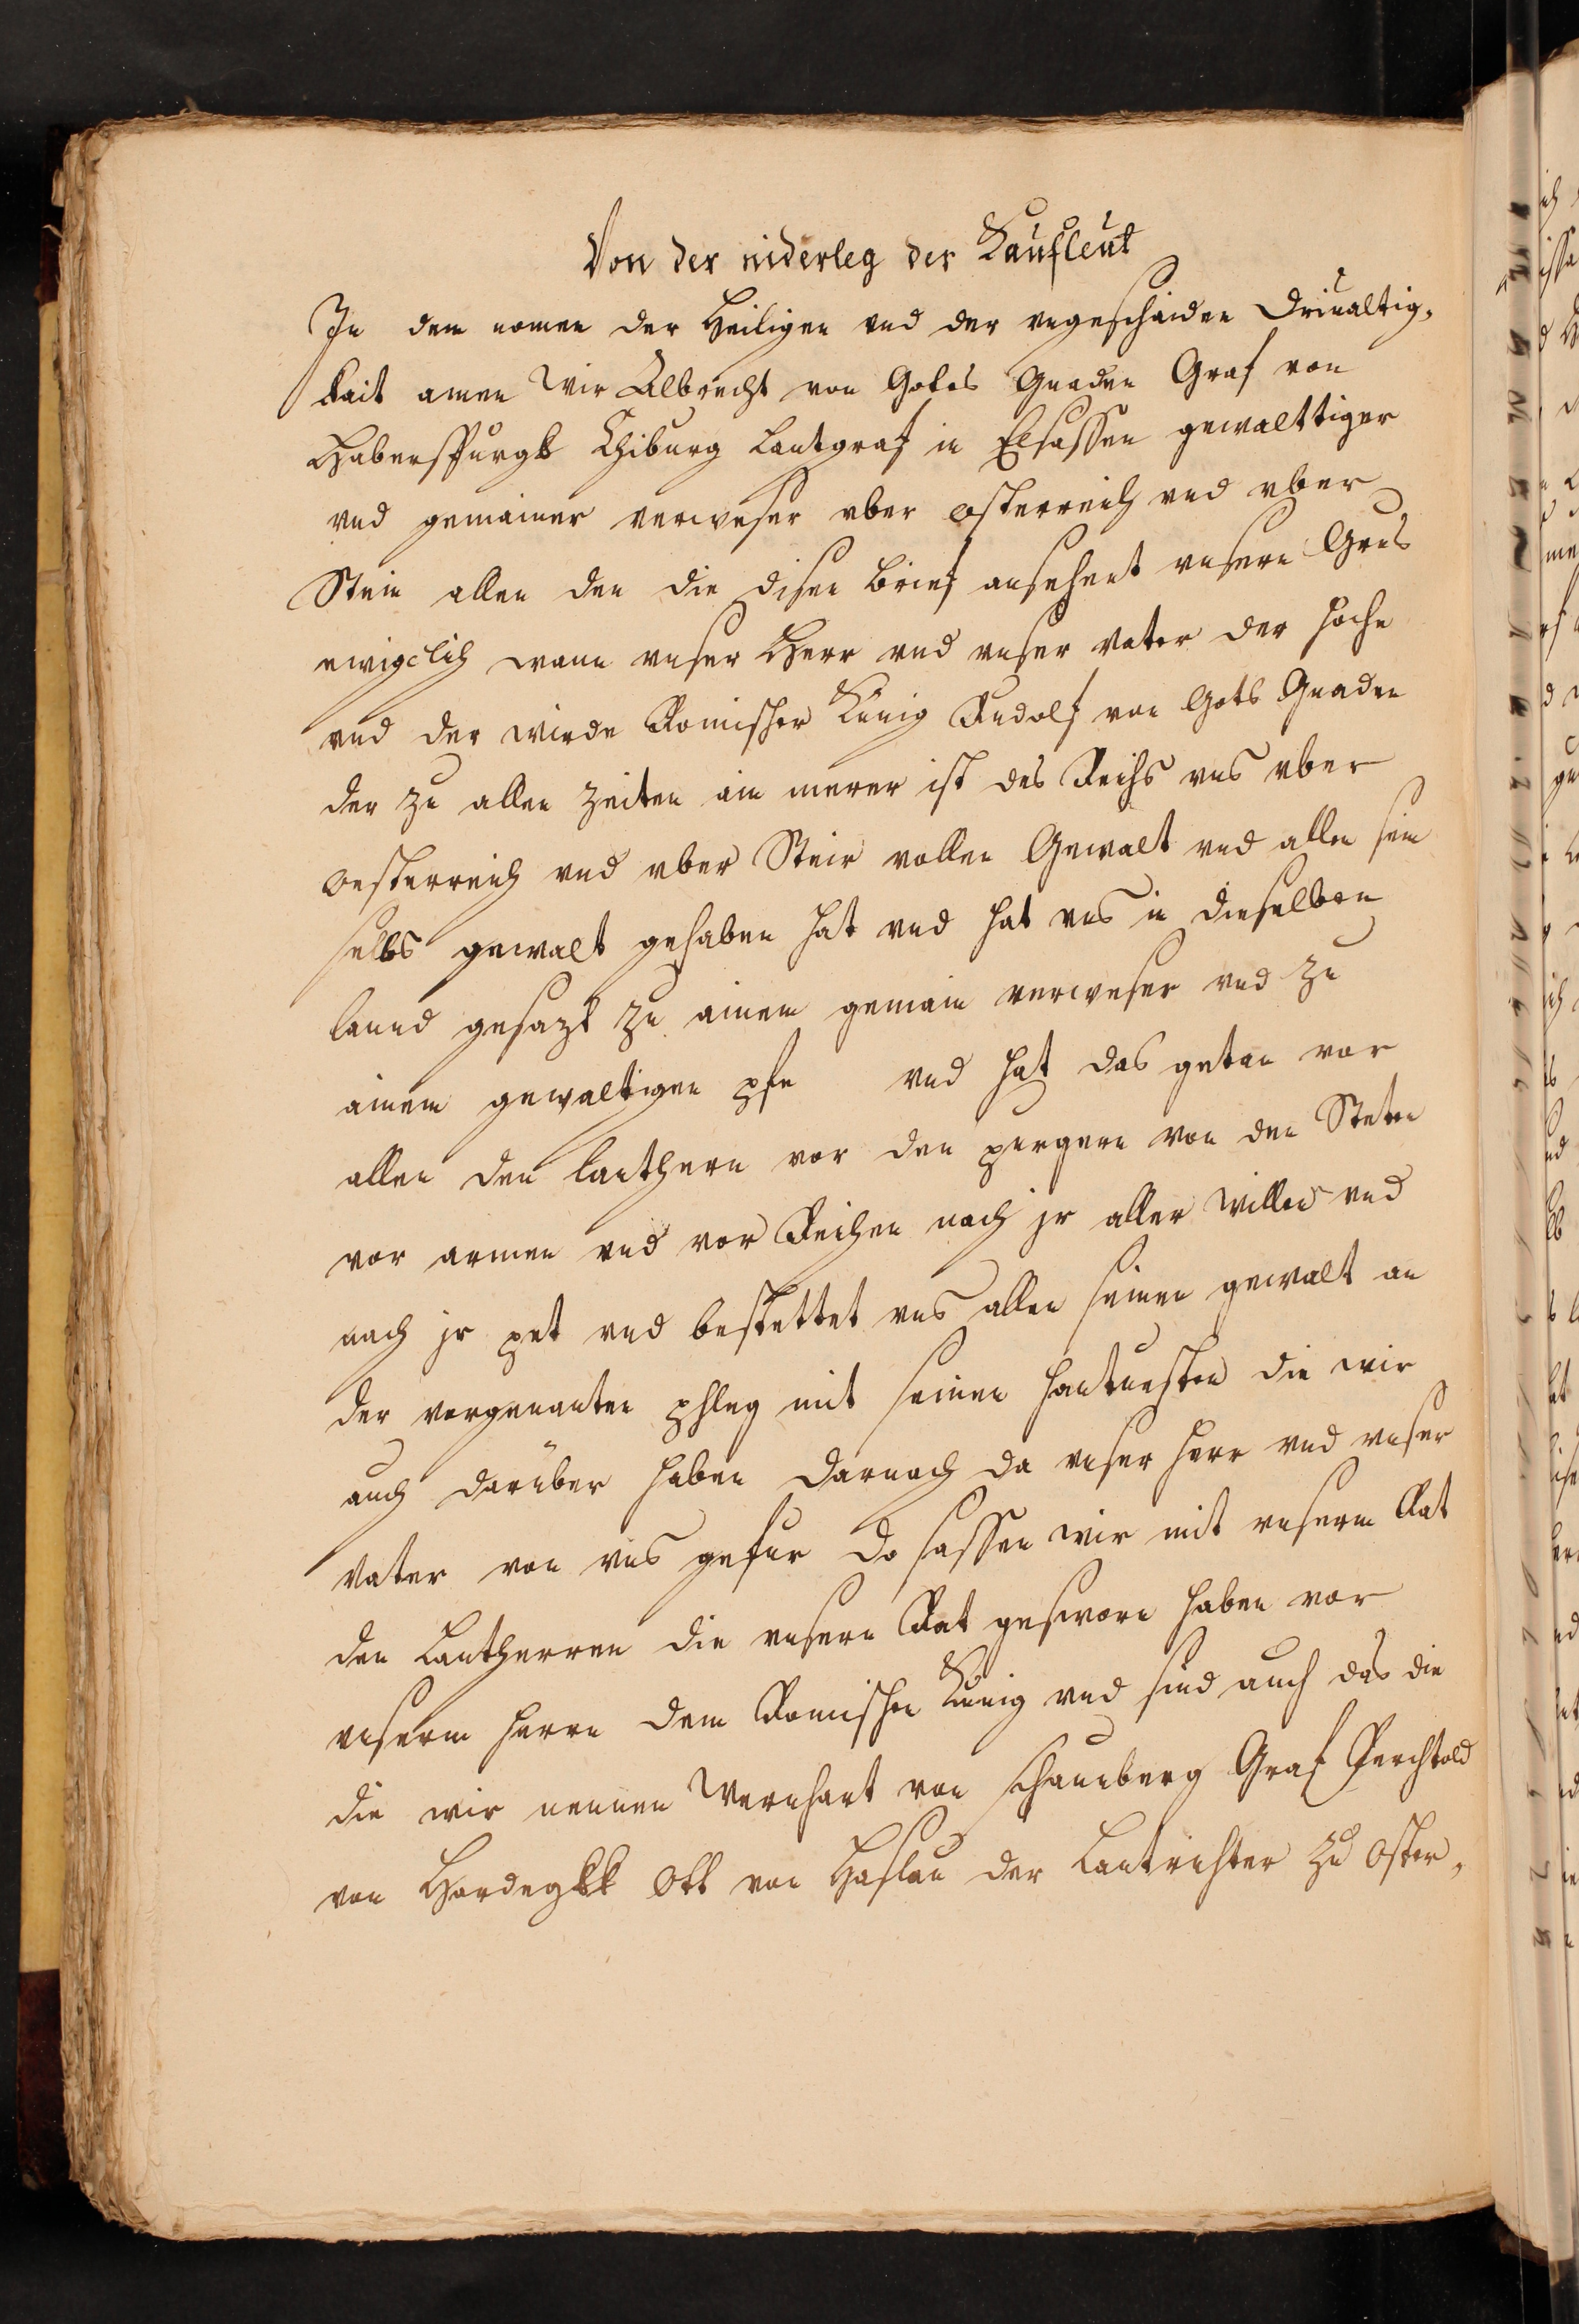 Von der niderleg der Kaufleut
In dem nomen der Heiligen und der ungeschaiden Drivaltig-
kait amen Wir Albrecht von Gotes Gnaden Graf von
Habenspurgk Chiburg Lantgraf in Elsassen gewalttiger
und gemainer verweser uber osterreich und uber
Steir allen den die disen brief ansehent unsern Grus
ewigclich wann unser Herr und unser Vater der hoche
und der wirde Romischer Künig Rudolf von Gots Gnaden
der zu allen zeiten ain merer ist des Reichs uns uber
oesterreich und uber Steir vollen Gewalt und allen sein
selbs gewalt gehaben hat und hat uns in dieselben
lannd gesazt zu ainem gemain verweser und zu
ainem gewaltigen phe und hat das getan vor
allen den lanthern vor den purgern von den Steten
vor armen und vor Reichen nach jr aller willen und
nach jr pet und bestettet uns allen seinen gewalt an
der vorgenanten phleg mit seinen hantuesten die wir
auch darüber haben darnach da unser herr und unser
Vater von uns gefur do sassen wir mit unserm Rat
den Lantherren die unsern Rat gesworn haben vor
unserm herrn dem Romischen Künig und sind auch das die
die wir nennen Wernhart von schaunberg Graf Perchtold
von Hardegkk Ott von Haslau der Lantrichter zu Oster-